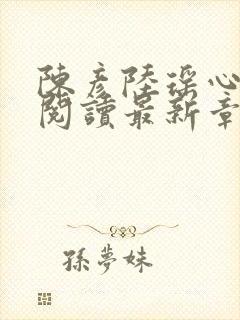 陳彥陸瑤心
閱讀最新章
孫夢妹